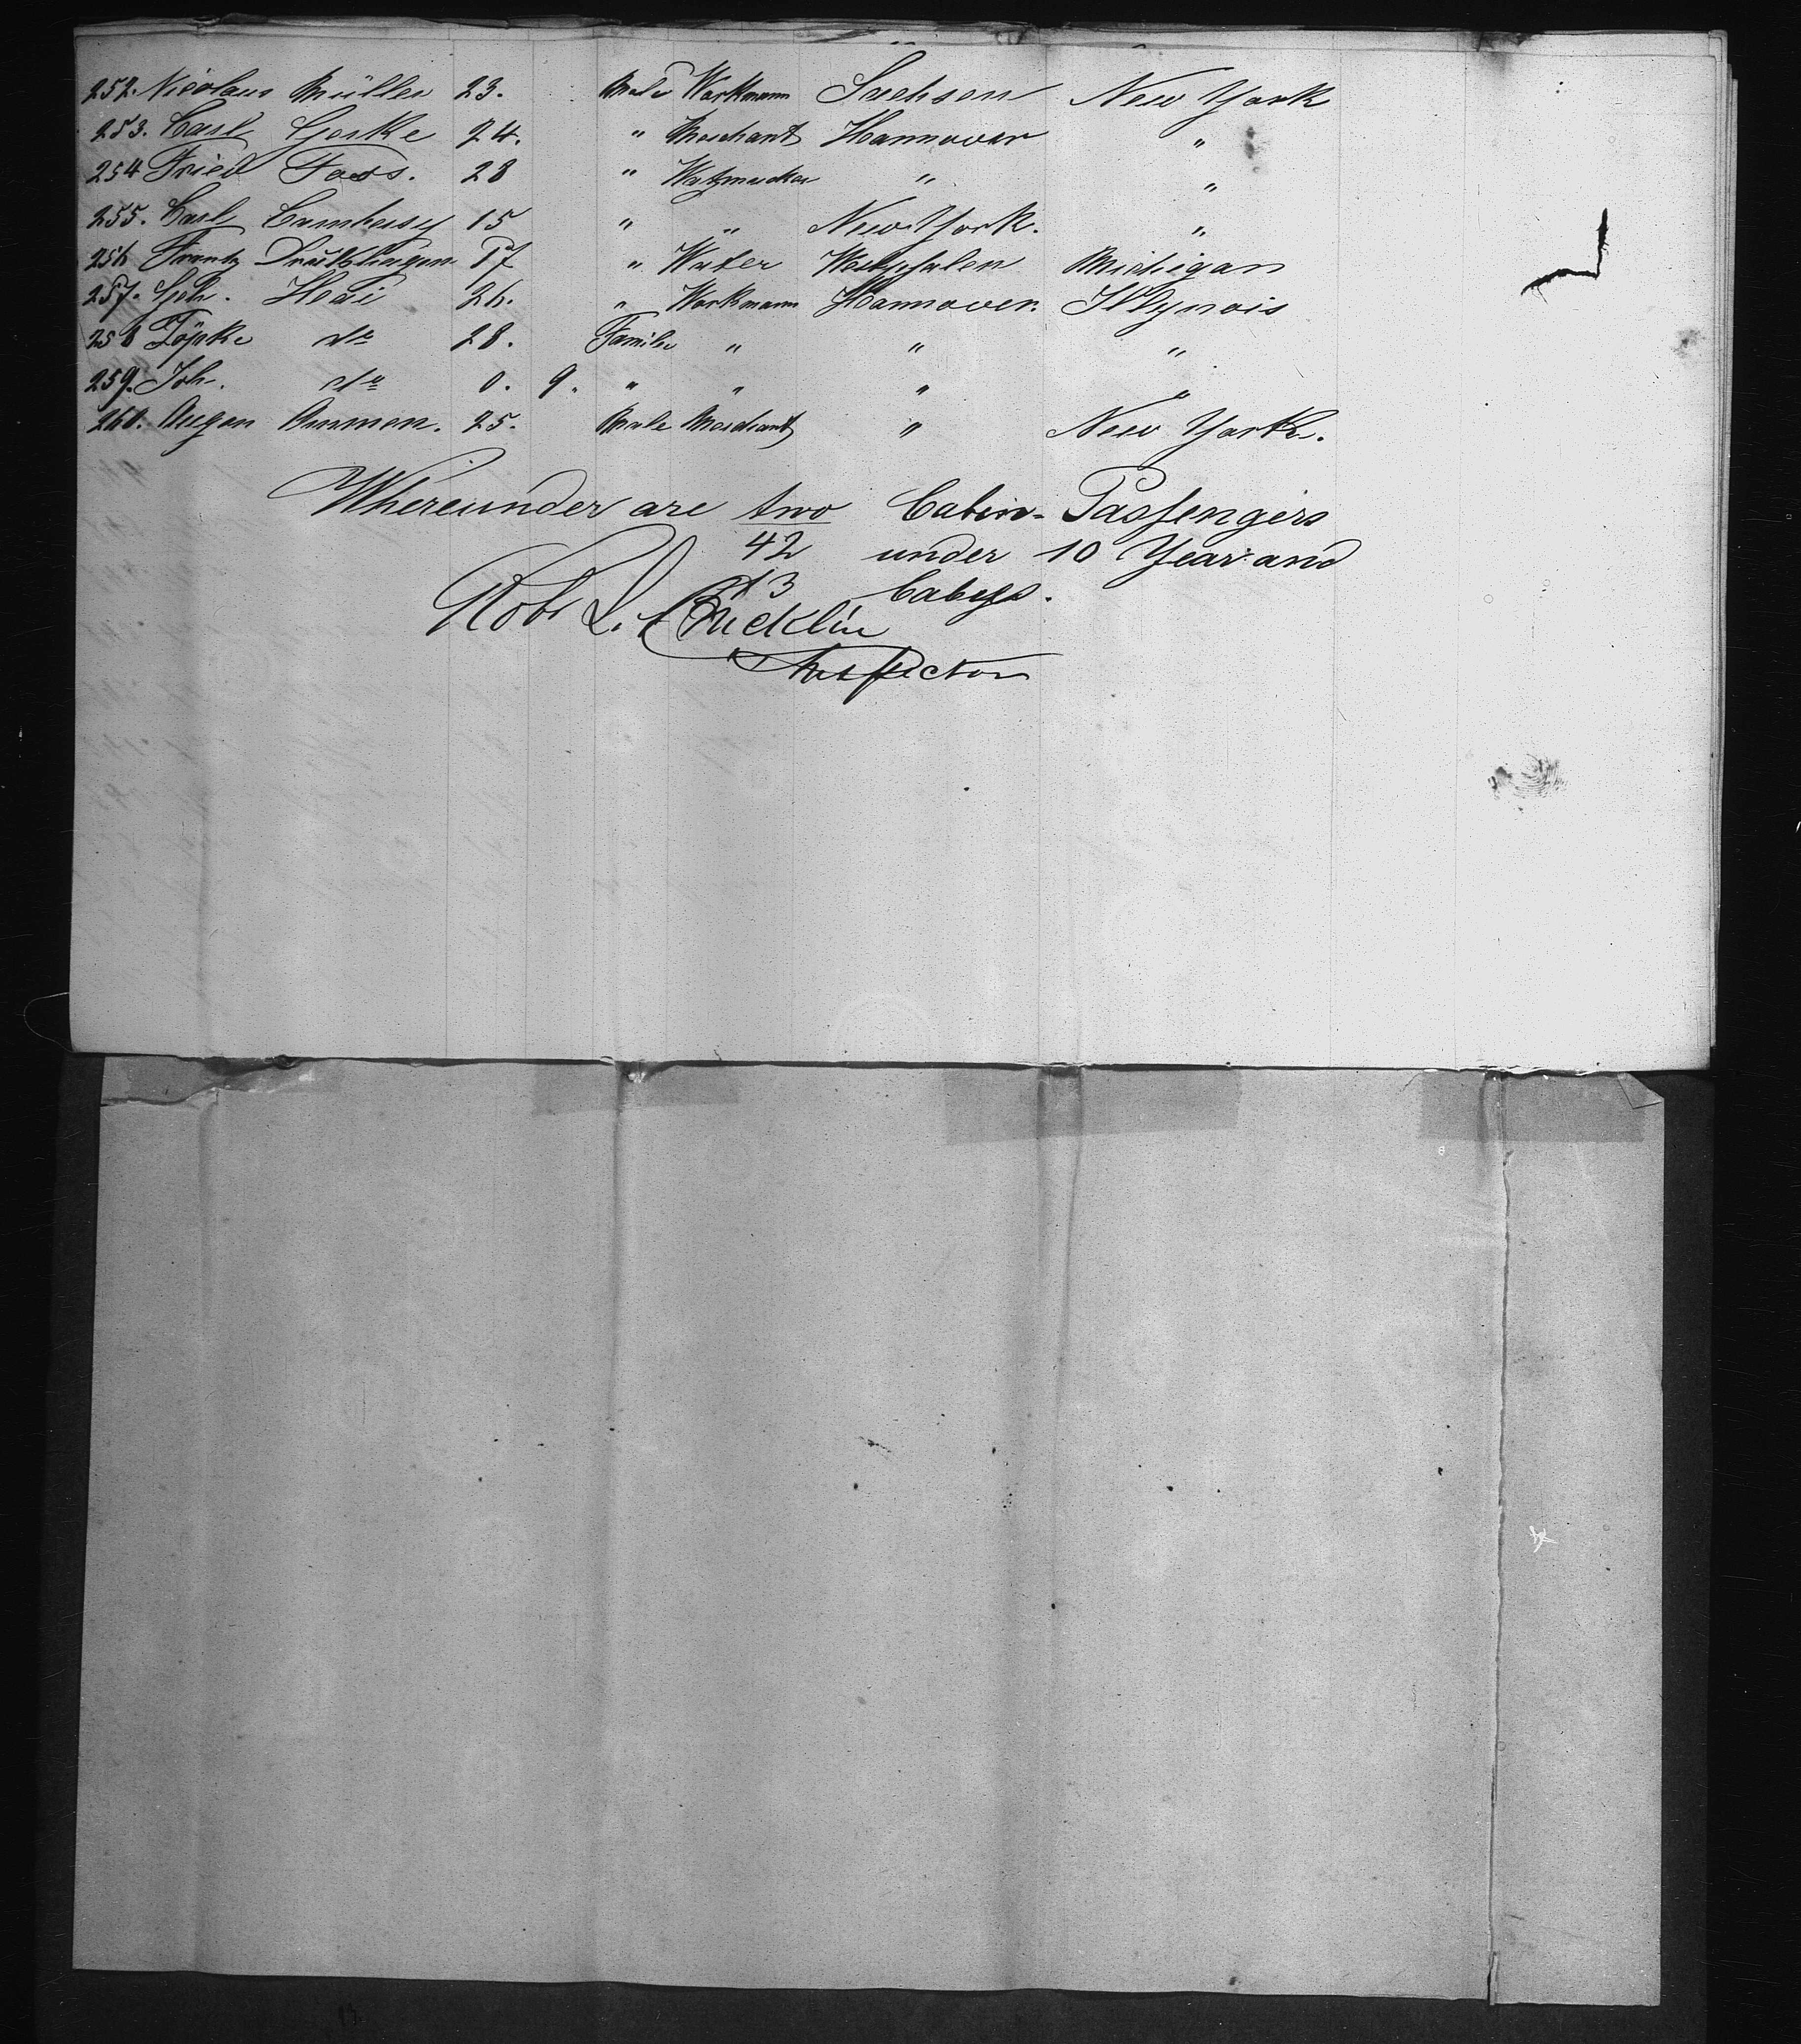 252. Nicolaus Müller 23. Male Workmann Sachsen New York
253. Carl Gerke 24. " Merchant Hannover "
254 Fried Foss. 28 " Watzmacker " "
255. Carl 15 " " New York. "
256 Frantz 17 " Water Westphalen Michigan
257. Geh. Hedi 26. " Workmann Hannover. Illynois
258 Töpke do 28. Familie " " "
259. Joh. do 0. 9. " " " "
260. Augen Ommen. 25. Male Merchant " New York.
Whereunder are two Cabin-Passengers
42 under 10 Year and
13 Babys.
Robt L. Bucklin
Inspector